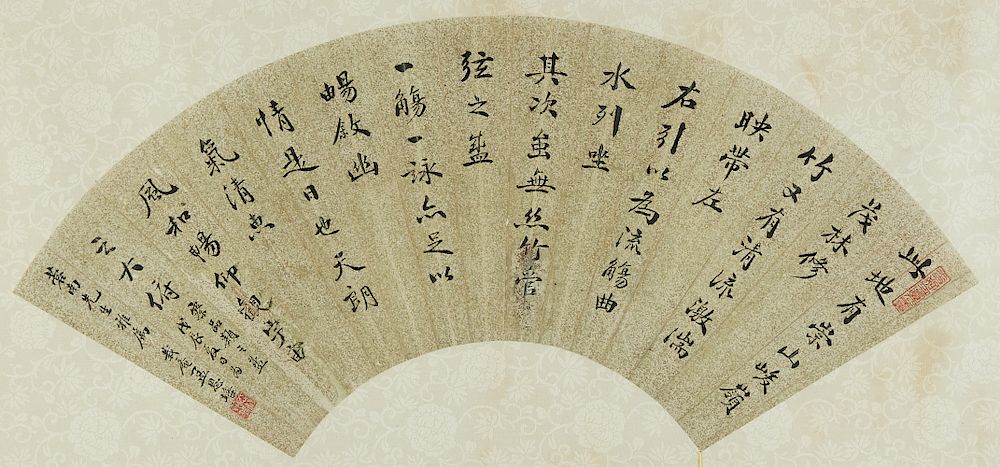 此地有崇山峻嶺
茂林修
竹又有清流激湍
映帶左
右引以為流觴曲
水列坐
其次虽無絲竹管
弦之盛
一觴一詠亦足以
暢敘幽
情是日也天朗
氣清惠
風和暢仰觀宇宙
之大俯
察品類之盛
戊辰夏日為
先生雅屬